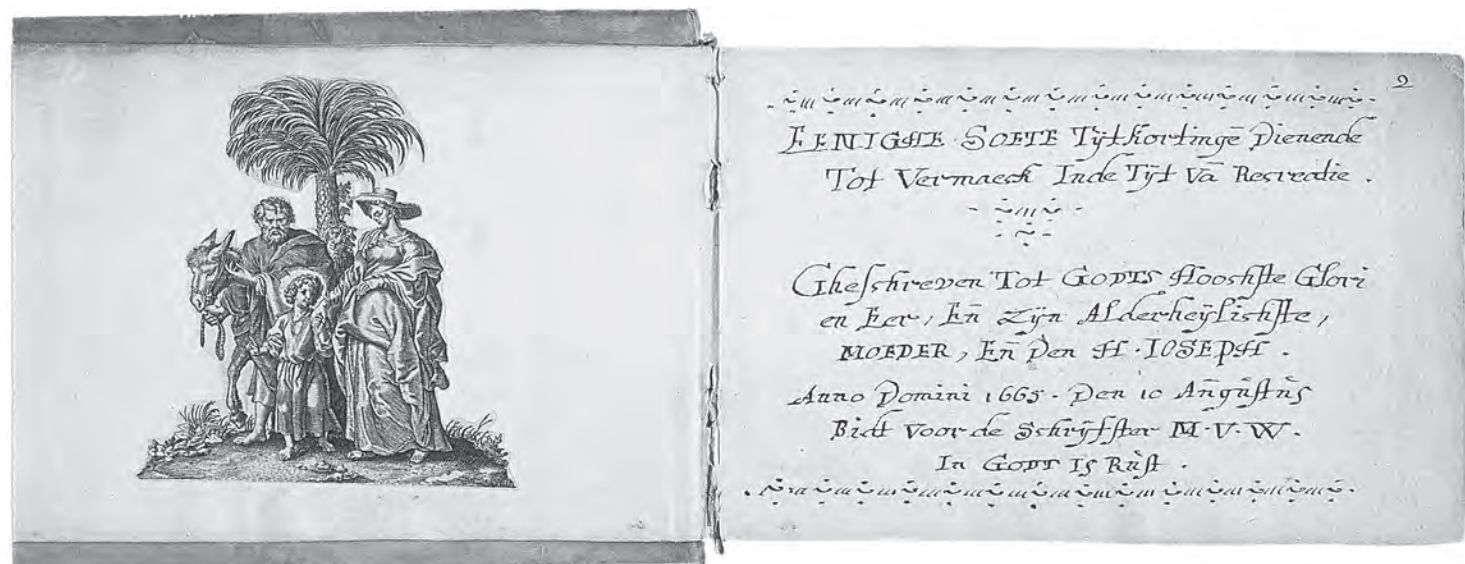 2
EENIGHE SOETE Tÿtkortingē Dienende
Tot Vermaeck Inde Tÿt Vā Recreatie .
Gheschreven Tot GODTS Hoochste Glori
en Eer, En̄ Zÿn Alderheÿlichste,
MOEDER, En̄ Den H · IOSEPH .
Anno Domini 1665 · Den 10 Aūgūstūs
Bidt voor de Schrÿfster M · V · W .
In GODT Is Rūst .